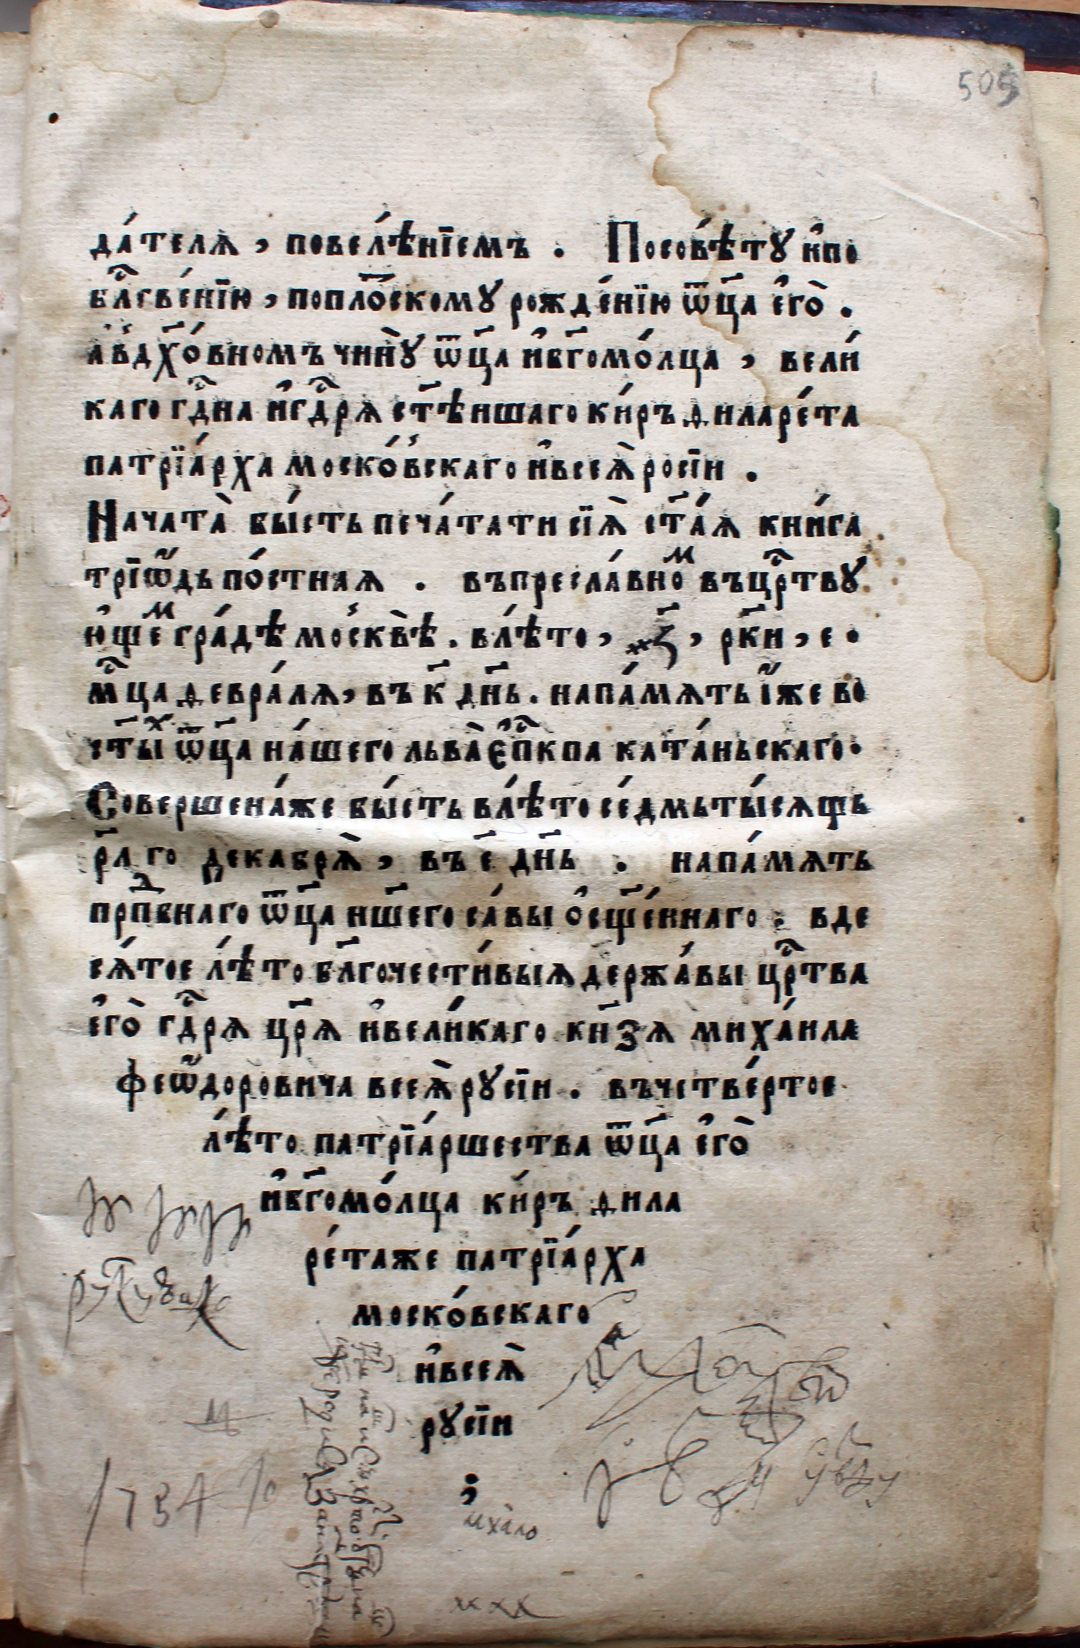 505
да́телѧ , повелѣ́нїемъ . Посовѣ́тꙋ и҆по
бл҃гⷭ҇ве́нїю , поплоⷮ҇скомꙋ рожде́нїю ѿц҃а є҆го̀ .
а҆в̾дх҃о́вномъ чи́нꙋ ѿц҃а и҆бг҃омо́лца , вели́
каго гдⷭ҇на и҆гдⷭ҇рѧ ст҃ѣишаго ки́ръ филаре́та
патрїа́рха моско́в̾скаго и҆всеѧ̀ росїи .
Начата̀ бы́сть печа́тати сїѧ̀ ст҃а́ѧ кни́га
трїѡ҆́дь по́стнаѧ . въпресла́вноⷨ въцрⷭ҇твꙋ́
ю҆щеⷨ гра́дѣ москвѣ̀ . влѣ́то , ҂з҃ , рк҃и , е .
мⷭ҇ца февра́лѧ , въ к҃ дн҃ь . напа́мѧть и҆́же во
ст҃ыⷯ ѿц҃а на́шего льва̀ є҆пⷭ҇кпа ката́ньскаго .
Соверше́на́же бы́сть влѣ́то се́дмьты́сѧщь
рл҃го декабрѧ̀ , въ е҃ дн҃ь . напа́мѧть
прпⷣбнаго ѿц҃а нш҃его са́вы ѻ҆сщ҃е́ннаго . вде
сѧ́тое лѣ́то бл҃гочести́выѧ держа́вы црⷭ҇тва
є҆го̀ гдⷭ҇рѧ цр҃ѧ и҆вели́каго кн҃зѧ миха́ила
феѡ҆́доровича всеѧ̀ рꙋсїи . въчетве́ртое
лѣ́то патрїа́ршества ѿц҃а є҆го̀
и҆бг҃омо́лца ки́ръ фила
ре́таже патрїа́рха
моско́вскаго
и҆всеѧ̀
рꙋсїи
1734